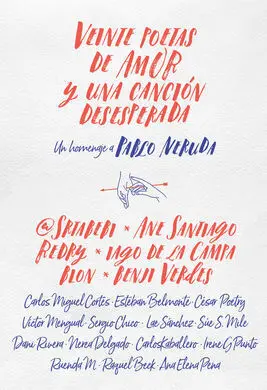 VEINTE POETAS
DE AMOR
Y UNA CANCIÓN
DESESPERADA
Un homenaje a PABLO NERUDA
@SRTABEBI * ANE SANTIAGO
REDRY * IAGO DE LA CAMPA
BLON * BENJI VERDES
Carlos Miguel Cortés · Esteban Belmonte · César Poetry
Víctor Mengual · Sergio Chico · Lae Sánchez · Sue S. Mile
Dani Rivera · Nerea Delgado · Carlos Kaballero · Irene G Punto
Ruenda M. · Raquel Beck · Ana Elena Pena